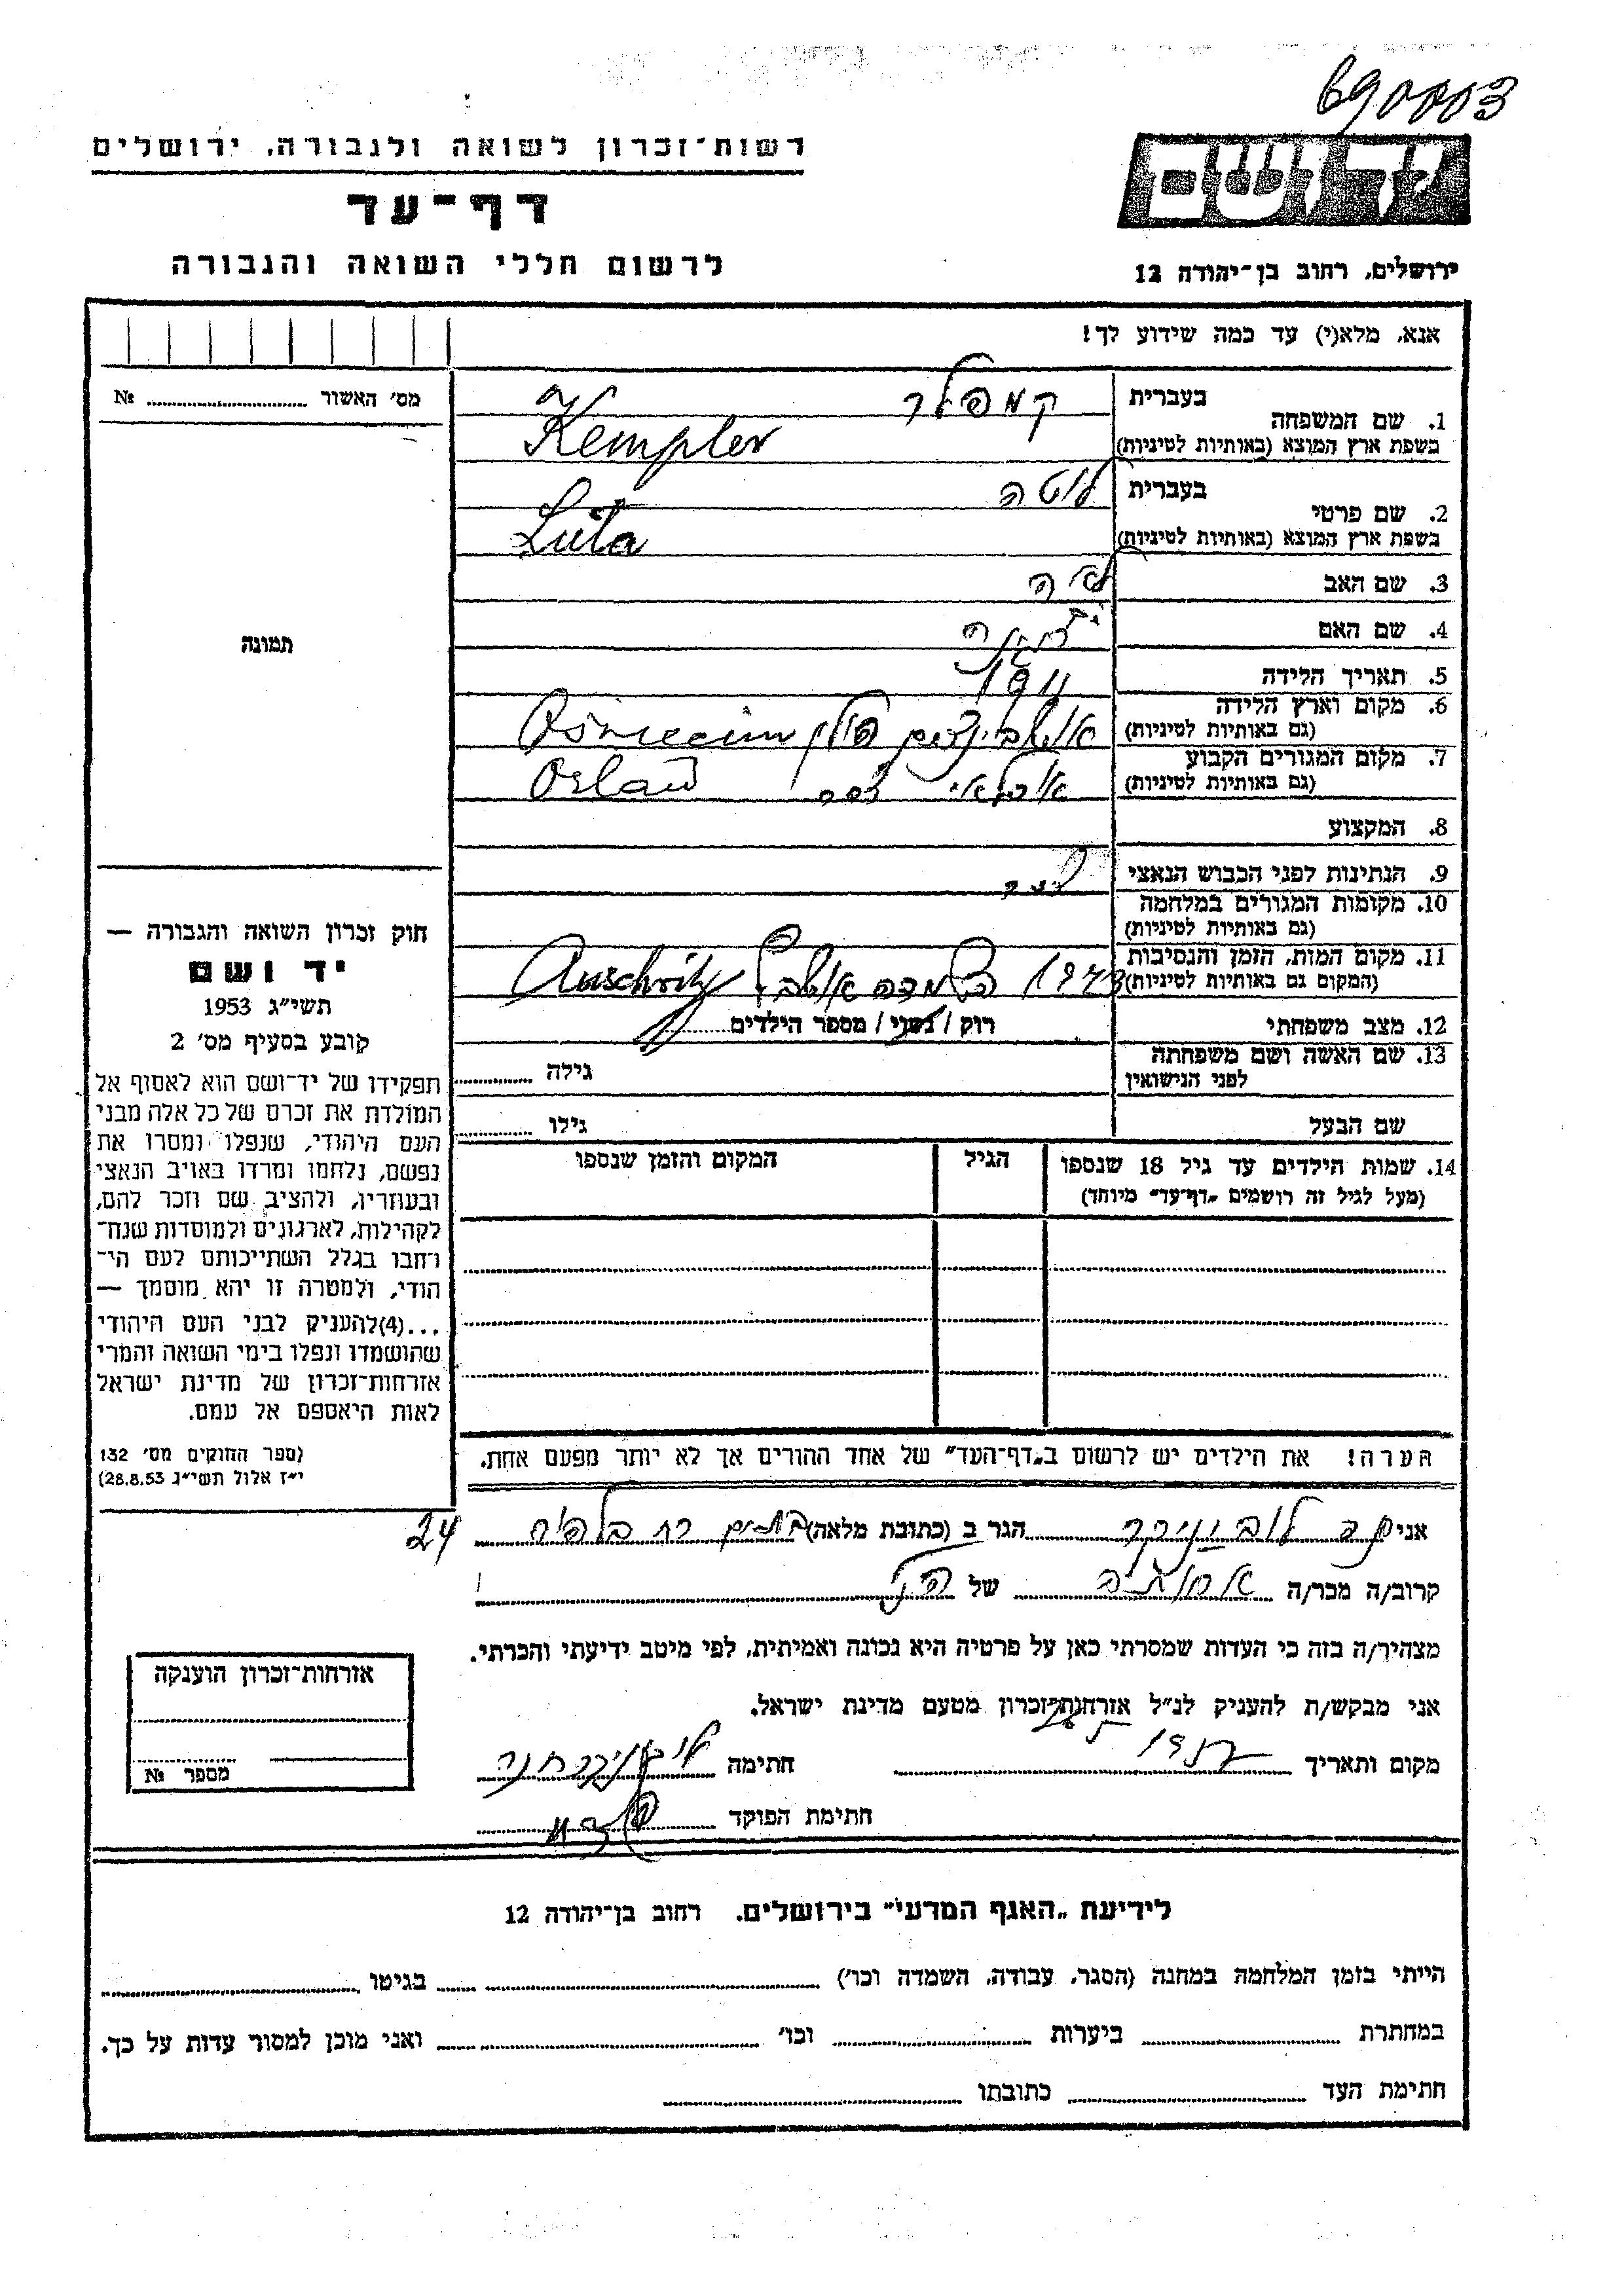 690003
רשות־זכרון לשואה ולגבורה, ירושלים
יד ושם
דף־עד
לרשום חללי השואה והגבורה
ירושלים, רחוב בן־יהודה 12
אנא, מלא(י) עד כמה שידוע לך!
מס׳ האשור ........ №
1. שם המשפחה
בעברית קמפלר
בשפת ארץ המוצא (באותיות לטיניות) Kempler
2. שם פרטי
בעברית לוטה
בשפת ארץ המוצא (באותיות לטיניות) Luta
3. שם האב
4. שם האם
5. תאריך הלידה 1911
6. מקום וארץ הלידה
(גם באותיות לטיניות) פולין
7. מקום המגורים הקבוע
(גם באותיות לטיניות)
8. המקצוע
9. הנתינות לפני הכבוש הנאצי
10. מקומות המגורים במלחמה
(גם באותיות לטיניות)
11. מקום המות, הזמן והנסיבות
(המקום גם באותיות לטיניות) 1943 Auschwitz
12. מצב משפחתי רוק / נשוי / מספר הילדים
13. שם האשה ושם משפחתה
לפני הנישואין
גילה
שם הבעל
גילו
תמונה
חוק זכרון השואה והגבורה —
יד ושם
תשי״ג 1953
קובע בסעיף מס׳ 2
תפקידו של יד־ושם הוא לאסוף אל
המולדת את זכרם של כל אלה מבני
העם היהודי, שנפלו ומסרו את
נפשם, נלחמו ומרדו באויב הנאצי
ובעוזריו, ולהציב שם וזכר להם,
לקהילות, לארגונים ולמוסדות שנח־
רחבו בגלל השתייכותם לעם הי־
הודי, ולמטרה זו יהא מוסמך —
...(4)להעניק לבני העם היהודי
שהושמדו ונפלו בימי השואה והמרי
אזרחות־זכרון של מדינת ישראל
לאות היאספם אל עמם.
(ספר החוקים מס׳ 132
י״ז אלול תשי״ג 28.8.53)
14. שמות הילדים עד גיל 18 שנספו
(מעל לגיל זה רושמים „דף־עד״ מיוחד)
הגיל
המקום והזמן שנספו
הערה! את הילדים יש לרשום ב„דף־העד״ של אחד ההורים אך לא יותר מפעם אחת.
אני הגר ב (כתובת מלאה) 24
קרוב/ה מכר/ה של
מצהיר/ה בזה כי העדות שמסרתי כאן על פרטיה היא נכונה ואמיתית, לפי מיטב ידיעתי והכרתי.
אני מבקש/ת להעניק לנ״ל אזרחות־זכרון מטעם מדינת ישראל.
מקום ותאריך חתימה
חתימת הפוקד
אזרחות־זכרון הוענקה
מספר №
לידיעת „האגף המדעי״ בירושלים, רחוב בן־יהודה 12
הייתי בזמן המלחמה במחנה (הסגר, עבודה, השמדה וכו׳) בגיטו
במחתרת ביערות וכו׳ ואני מוכן למסור עדות על כך.
חתימת העד כתובתו